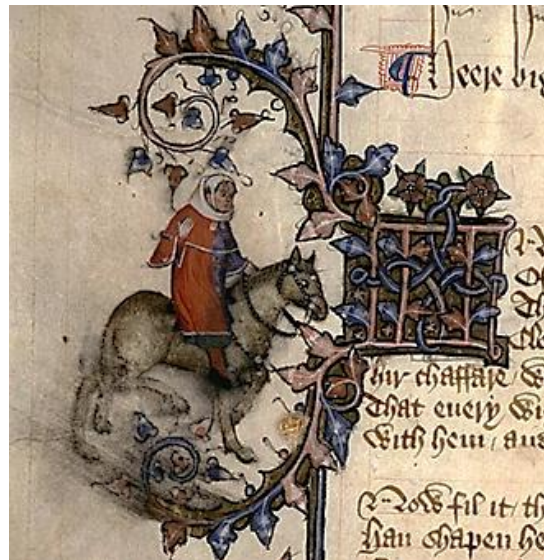 Heere big
Of
Th
Cle
hir chaffare / w
That euery wi
With hem / and
Now fil it / th
Han shapen he